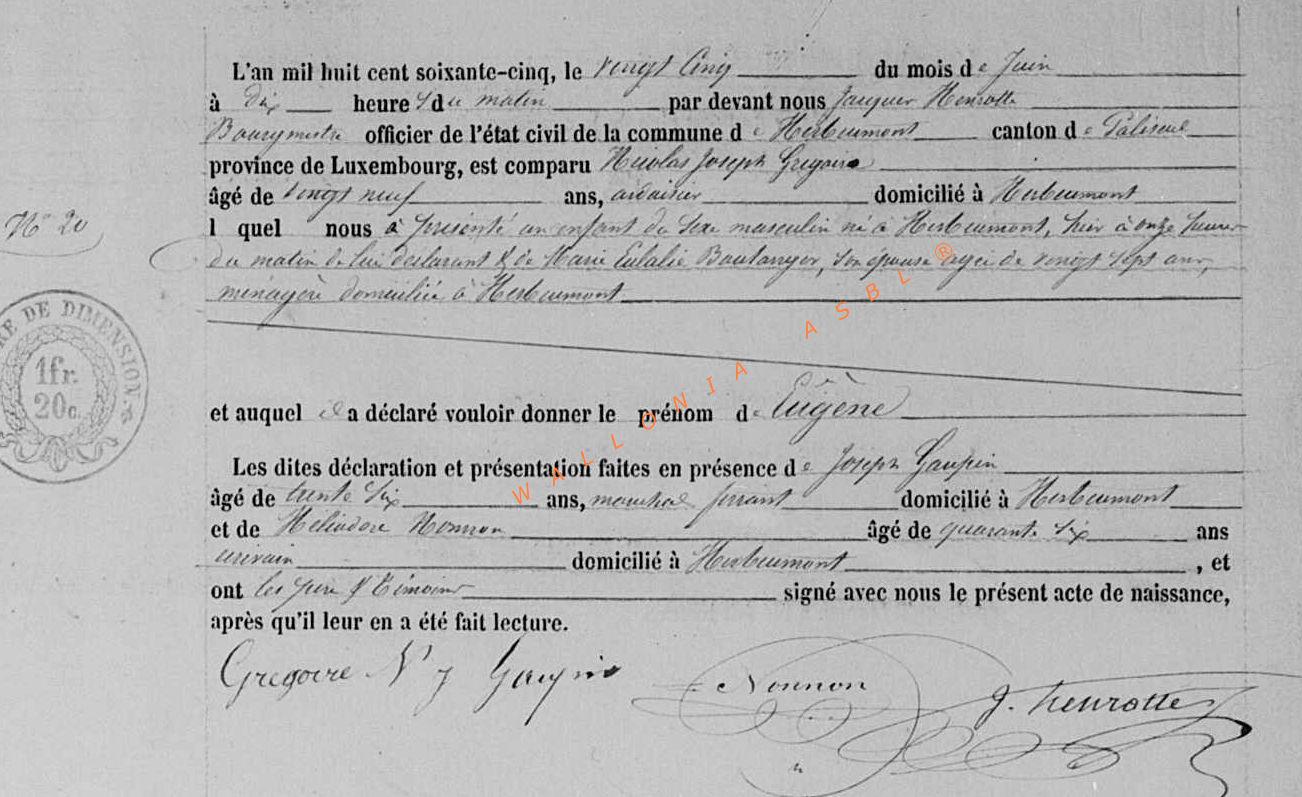 L'an mil huit cent soixante-cinq, le vingt Cinq du mois de Juin
à Dix heures du matin par devant nous Jacques Henrotte
Bourgmestre officier de l'état civil de la commune de Herbeumont canton de Paliseul
province de Luxembourg, est comparu Nicolas Joseph Gregoire
âgé de vingt neuf ans, ardoisier domicilié à Herbeumont
N° 20
l quel nous a présenté un enfant du sexe masculin né à Herbeumont, hier à onze heures
du matin de lui déclarant & de Marie Eulalie Boulanger, son épouse agée de vingt sept ans,
ménagère domiciliée à Herbeumont
RE DE DIMENSION
1fr.
20c.
et auquel il a déclaré vouloir donner le prénom de Eugène
Les dites déclaration et présentation faites en présence de Joseph Gaupin
âgé de trente six ans, marechal ferrant domicilié à Herbeumont
et de Héliodore Nonnon âgé de quarante six ans
domicilié à Herbeumont, et
ont les père & témoins signé avec nous le présent acte de naissance,
après qu'il leur en a été fait lecture.
Gregoire N J Gaupin Nonnon J. henrotte
WALLONIA ASBL ®